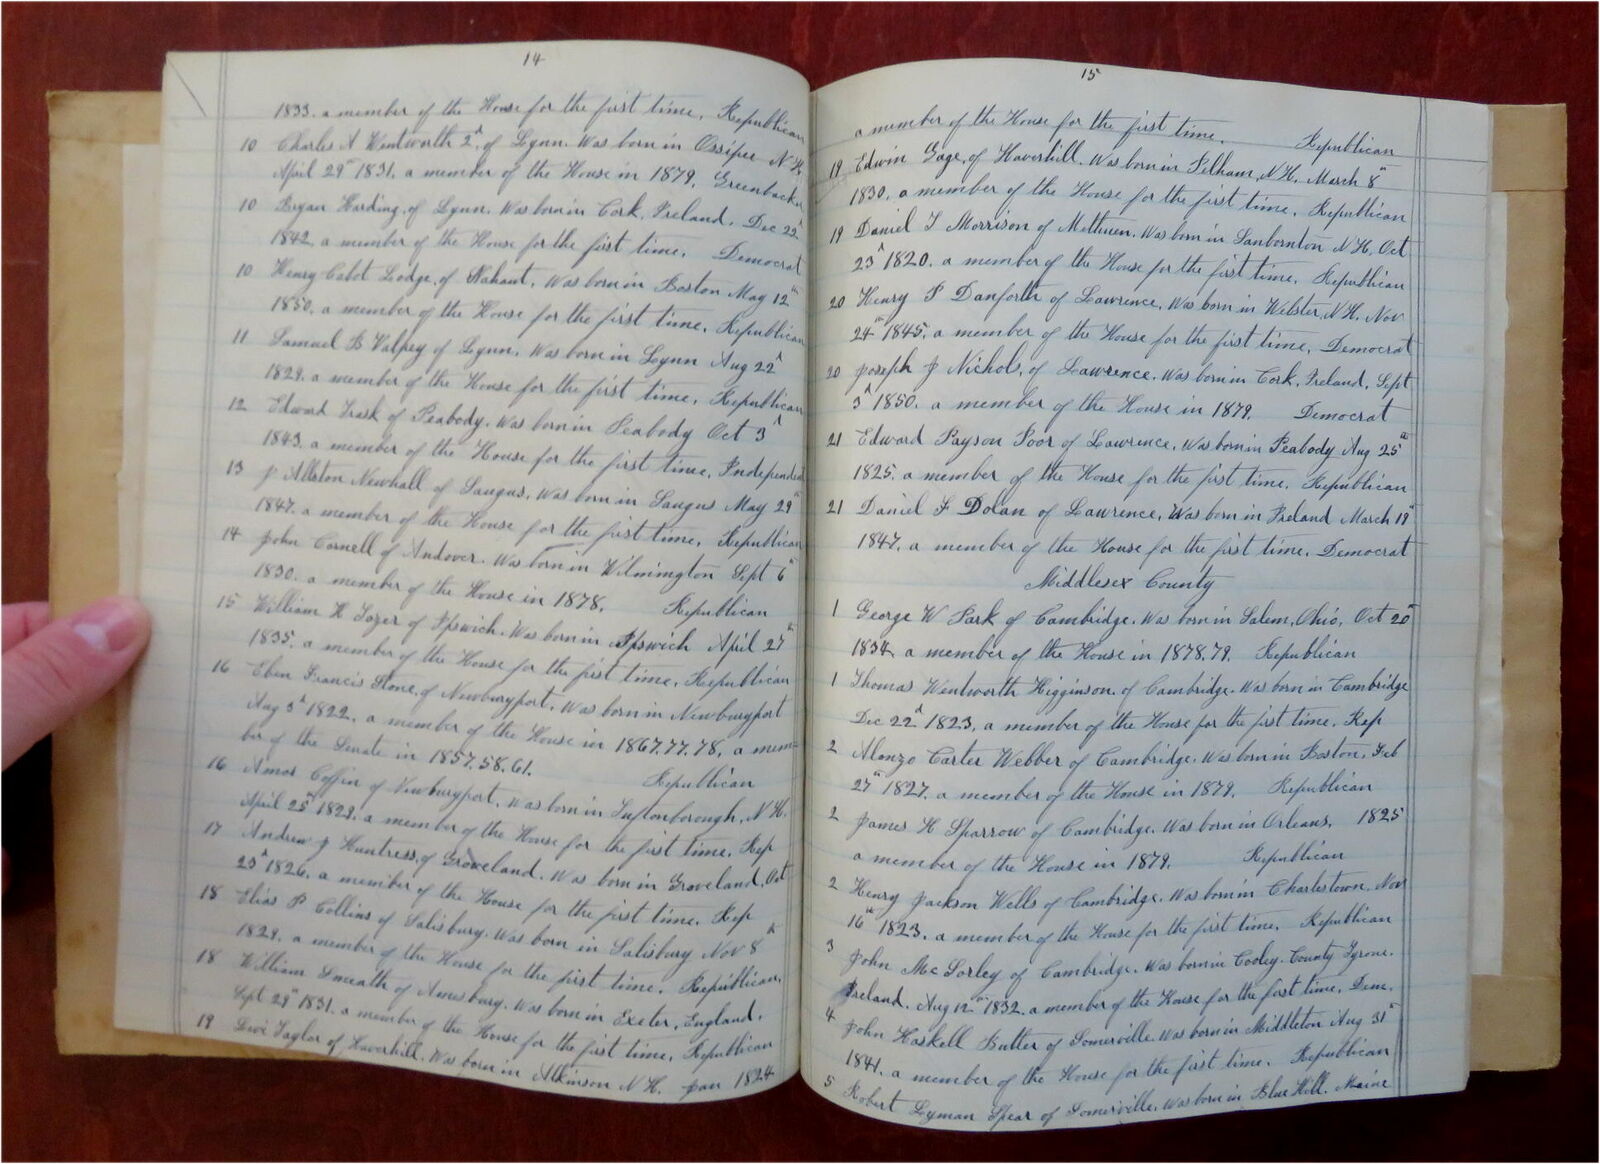 14
1833. a member of the House for the first time. Republican
10 Charles A Wentworth 2d. of Lynn. Was born in Ossipee N.H.
April 29th 1831. a member of the House in 1879. Greenbacker
10 Bryan Harding. of Lynn. Was born in Cork, Ireland. Dec 22d
1842. a member of the House for the first time. Democrat
10 Henry Cabot Lodge, of Nahant, Was born in Boston May 12th
1850. a member of the House for the first time. Republican
11 Samuel B Valpey of Lynn. Was born in Lynn Aug 22d
1829. a member of the House for the first time. Republican
12 Edward Trask of Peabody. Was born in Peabody Oct 3d
1843. a member of the House for the first time, Independent
13 J Allston Newhall of Saugus. Was born in Saugus May 29th
1847. a member of the House for the first time, Republican
14 John Cornell of Andover. Was born in Wilmington Sept 6th
1830. a member of the House in 1878. Republican
15 William H Tozer of Ipswich. Was born in Ipswich April 27th
1835. a member of the House for the first time, Republican
16 Eben Francis Stone, of Newburyport. Was born in Newburyport
Aug 3d 1822. a member of the House in 1867.77.78, a mem=
ber of the Senate in 1857.58.61. Republican
16 Amos Coffin of Newburyport. Was born in Tuftonborough, N.H.
April 25th 1829. a member of the House for the first time. Rep
17 Andrew J Huntress, of Groveland. Was born in Groveland, Oct
23d 1826. a member of the House for the first time. Rep
18 Elias P Collins of Salisbury. Was born in Salisbury Nov 8th
1829. a member of the House for the first time. Republican.
18 William Smeath of Amesbury. Was born in Exeter, England.
Sept 29th 1831. a member of the House for the first time, Republican
19 Levi Taylor of Haverhill. Was born in Atkinson N.H. Jan 1824
15
a member of the House for the first time. Republican
19 Edwin Gage, of Haverhill. Was born in Pelham, N.H. March 8th
1830. a member of the House for the first time. Republican
19 Daniel T Morrison of Methuen. Was born in Sanbornton N.H. Oct
23d 1820. a member of the House for the first time, Republican
20 Henry P Danforth of Lawrence, Was born in Webster, N.H. Nov
24th 1845. a member of the House for the first time, Democrat
20 Joseph J Nichols, of Lawrence. Was born in Cork, Ireland, Sept
3d 1850. a member of the House in 1879. Democrat
21 Edward Payson Poor of Lawrence, Was born in Peabody Aug 25th
1825. a member of the House for the first time. Republican
21 Daniel F Dolan of Lawrence, Was born in Ireland March 19th
1847. a member of the House for the first time. Democrat
Middlesex County
1 George W Park of Cambridge. Was born in Salem, Ohio, Oct 20th
1834. a member of the House in 1878.79. Republican
1 Thomas Wentworth Higginson. of Cambridge. Was born in Cambridge
Dec 22d 1823, a member of the House for the first time. Rep
2 Alonzo Carter Webber of Cambridge. Was born in Boston, Feb
27th 1827. a member of the House in 1879. Republican
2 James H Sparrow of Cambridge. Was born in Orleans, 1825
a member of the House in 1879. Republican
2 Henry Jackson Wells of Cambridge. Was born in Charlestown. Nov
16th 1823. a member of the House for the first time. Republican
3 John McSorley of Cambridge. Was born in Cooley. County Tyrone.
Ireland. Aug 12th 1832. a member of the House for the first time, Dem.
4 John Haskell Butler of Somerville. Was born in Middleton Aug 31st
1841. a member of the House for the first time. Republican
5 Robert Lyman Spear of Somerville. Was born in Blue Hill. Maine